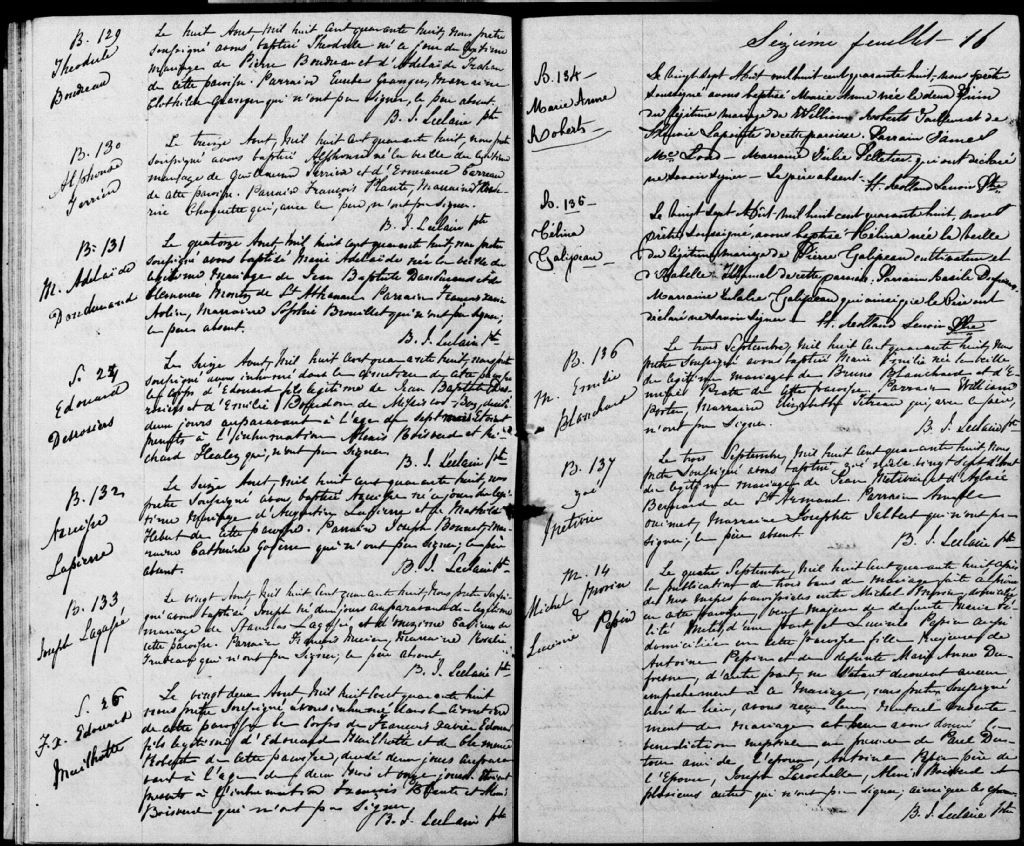 B. 129
Theodule
Boudreau
Le huit Aout, Mil huit cent quarante huit, nous prêtre
soussigné avons baptisé Theodule né ce jour du légitime
mariage de Pierre Boudreau et d'Adelaide
de cette paroisse. Parrain Granger, Marraine
Clothilde Granger qui n'ont pu signer, le père absent.
B. J. Leclaire ptre
B. 130
Alphonse
Perrin
Le treize Aout, Mil huit cent quarante huit, nous prêtre
soussigné avons baptisé Alphonse né la veille du légitime
mariage de Perrin et d'
de cette paroisse. Parrain François Plante, Marraine
Choquette qui, avec le père, n'ont pu signer.
B. J. Leclaire ptre
B. 131
M. Adelaide
Dandurand
Le quatorze Aout, Mil huit cent quarante huit, nous prêtre
soussigné avons baptisé Marie Adelaide née la veille du
légitime mariage de Jean Baptiste Dandurand et de
Clemence de St Athanase Parrain François Xavier
, Marraine Sophie Brouillet qui n'ont pu signer;
le père absent.
B. J. Leclaire ptre
S. 25
Edouard
Desrosiers
Le seize Aout, Mil huit cent quarante huit, nous prêtre
soussigné avons inhumé dans le cimetière de cette paroisse
le corps d'Edouard fils légitime de Jean Baptiste Des-
rosiers et d'Emilie Bourdon de décédé
deux jours auparavant à l'âge de sept mois. Etaient
présents à l'inhumation Alexis Boisvert et Ri-
chard Healey qui, n'ont pu signer.
B. J. Leclaire ptre
B. 132
Lapierre
Le seize Aout, Mil huit cent quarante huit, nous
prêtre soussigné avons baptisé né ce jour du légi-
time mariage d'Augustin Lapierre et de Mathilde
Hebert de cette paroisse. Parrain Joseph Bonnet, Mar-
raine Catherine qui n'ont pu signer; le père
absent.
B. J. Leclaire ptre
B. 133
Joseph Lagassé
Le vingt Aout, Mil huit cent quarante huit, Nous prêtre soussi-
gné avons baptisé Joseph né deux jours auparavant du légitime
mariage de Stanislas Lagassé et d' de
cette paroisse. Parrain François , Marraine Rosalie
qui n'ont pu signer; le père absent
B. J. Leclaire ptre
S. 26
F. X. Edouard
Mailhotte
Le vingt deux Aout, Mil huit cent quarante huit
nous prêtre soussigné avons inhumé dans le cimetière
de cette paroisse le corps de François Xavier Edouard
fils légitime d'Edouard Mailhotte et de Clemence
Robert de cette paroisse, décédé deux jours aupara-
vant à l'âge de deux Mois et onze jours. Etaient
présents à l'inhumation François Plante et Alexis
Boisvert qui n'ont pu signer.
B. J. Leclaire ptre
Seizième feuillet 16
B. 134
Marie Anne
Roberts
Le vingt sept Aout mil huit cent quarante huit, nous prêtre
soussigné avons baptisé Marie Anne née le deux Juin
du légitime mariage de William Roberts et de
Lapointe de cette paroisse. Parrain James
Mc Lord Marraine Julie Pelletier qui ont déclaré
ne savoir signer. Le père absent.
H. Rolland Lenoir Ptre
B. 135
Célina
Galipeau
Le vingt sept Aout mil huit cent quarante huit, nous
prêtre soussigné, avons baptisé Célina née la veille
du légitime mariage de Pierre Galipeau cultivateur et
d'Isabelle de cette paroisse. Parrain Basile
Marraine Eulalie Galipeau qui ainsi que le Père ont
déclaré ne savoir signer. H. Rolland Lenoir Ptre
B. 136
M. Emilie
Blanchard
Le trois Septembre, Mil huit cent quarante huit, Nous
prêtre soussigné avons baptisé Marie Emilie née la veille
du légitime mariage de Bruno Blanchard et d'E-
de cette paroisse, Parrain William
Porter, Marraine Elizabeth qui, avec le père,
n'ont pu signer.
B. J. Leclaire ptre
B. 137
Zoé
Métivier
Le trois Septembre, Mil huit cent quarante huit, Nous
prêtre soussigné avons baptisé Zoé née le vingt sept d'Aout
du légitime mariage de Jean Métivier et d'Aglaée
Bernard de St Armand. Parrain
Ouimet, Marraine Josephte Jalbert qui n'ont pu
signer; le père absent.
B. J. Leclaire ptre
M. 14
Michel Morin
&
Lucie Pepin
Le quatre Septembre, Mil huit cent quarante huit après
la publication de trois bans de mariage faite au prône
de nos messes paroissiales entre Michel Morin, domicilié
en cette paroisse, veuf majeur de defunte Marie
d'une part et Lucie Pepin aussi
domiciliée en cette paroisse fille Majeure de
Antoine Pepin et de defunte Marie Anne Du-
fresne, d'autre part, ne s'étant découvert aucun
empêchement à ce Mariage, nous prêtre, soussigné
curé du lieu, avons reçu leur mutuel consente-
ment de mariage et leur avons donné la
bénédiction nuptiale en présence de Paul
ami de l'époux, Antoine Pepin père de
l'Epouse, Joseph Larochelle, Alexis Boisvert et
plusieurs autres qui n'ont pu signer, ainsi que les époux.
B. J. Leclaire Ptre